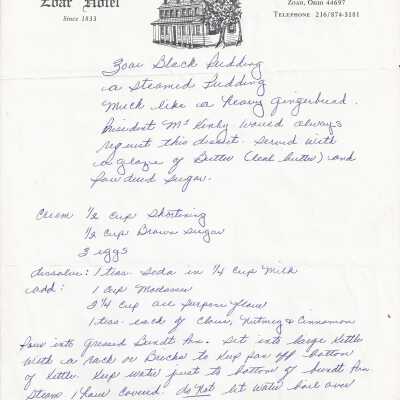 Zoar Hotel
Since 1833
Zoar, Ohio 44697
Telephone 216/874-3181
Zoar Black Pudding
is a Steamed Pudding
Much like a heavy gingerbread.
President McKinly would always
request this dessert. Served with
a glaze of Butter (real butter) and
Powdered Sugar.
Cream 1/2 Cup Shortining
1/2 Cup Brown Sugar
3 eggs
dissolve: 1 teas. Soda in 1/4 Cup Milk
add: 1 Cup Molasses
2 1/4 Cup all purpose flour
1 teas. each of Clove, Nutmeg & Cinnamon
Pour into greased Bundt Pan. Set into large Kettle
With a rack or Bricks to Keep pan off bottom
of Kettle. Keep water just to bottom of bundt Pan.
Steam 1 hour Covered. do Not let water boil over